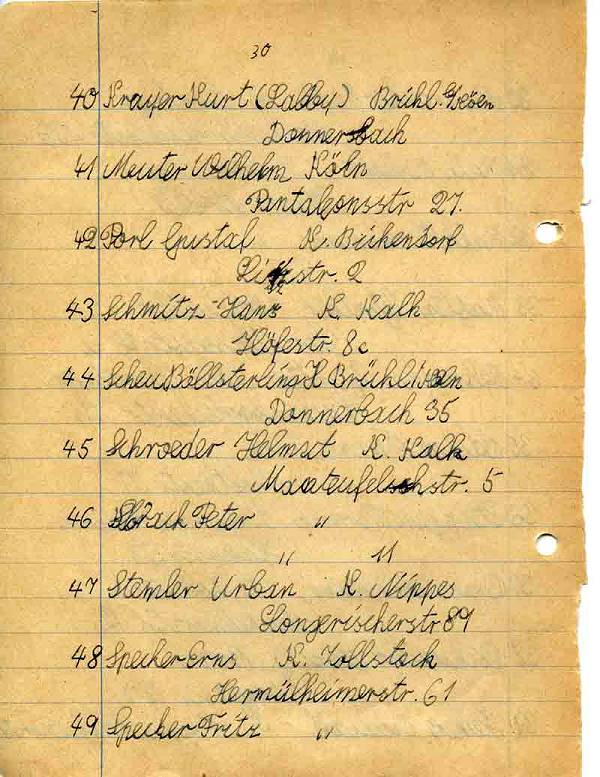 30
40 Krayer Kurt (Labby) Brühl b/Köln
Donnersbach
41 Meuter Wilhelm Köln
Pantaleonsstr 27.
42 Porl Gustaf K. Bickendorf
str. 2
43 Schmitz Hans K. Kalk
Höfestr. 8c
44 Scheu Böllsterling H Brühl
Donnerbach 35
45 Schroeder Helmut K. Kalk
str. 5
46 Peter "
" 11
47 Stemler Urban K. Nippes
Longericherstr 89
48 Specker Erns K. Zollstock
Hermülheimerstr. 61
49 Specker Fritz "